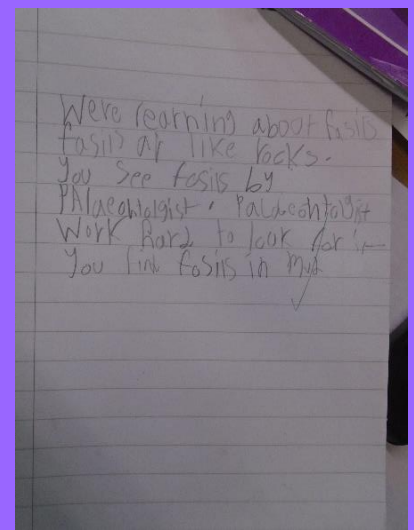 Were learning about fosils
fosils ar like rocks.
you see fosils by
PAlaeontolgist. Palaeontolgist
Work Hard to look for it
You fink fosils in mud